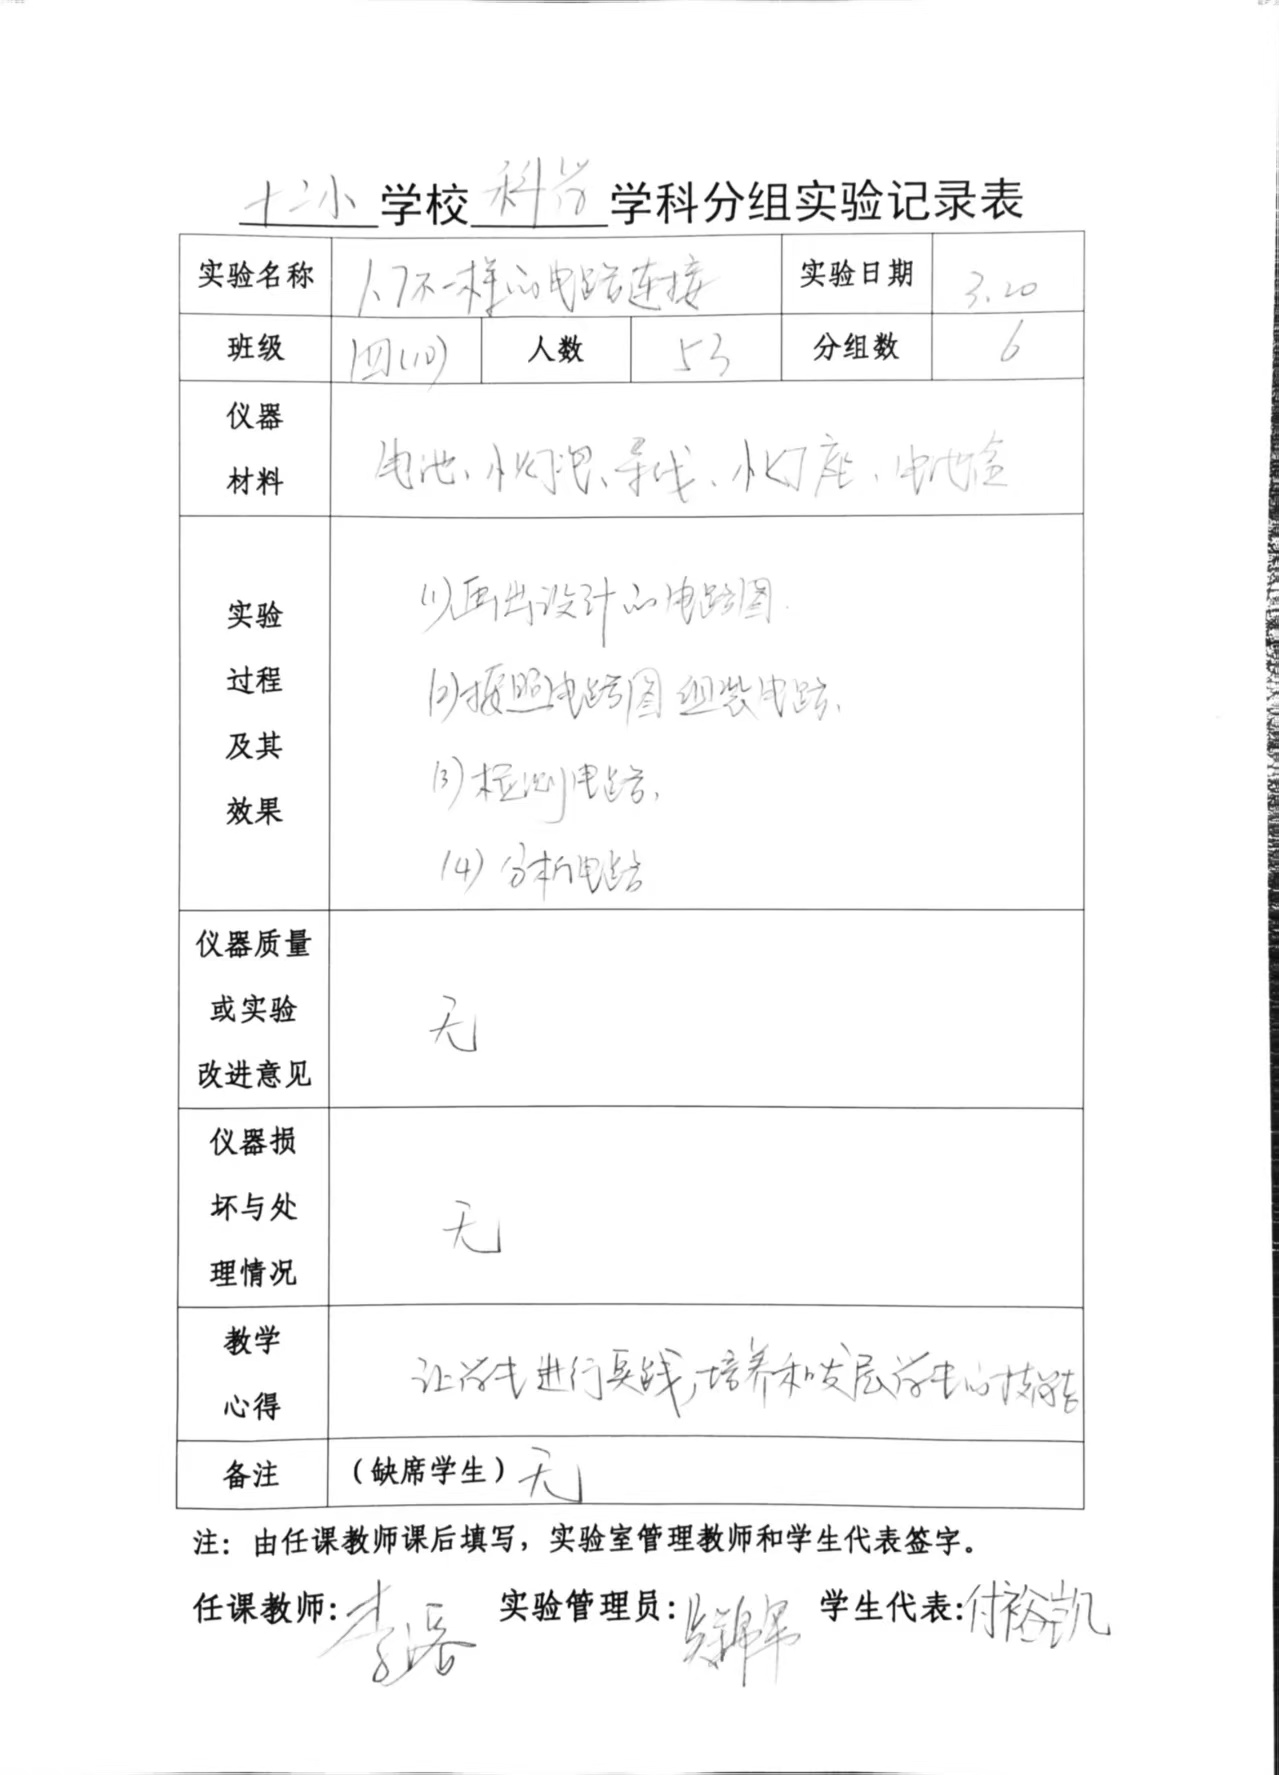 十二小 学校 科学 学科分组实验记录表
实验名称 1.7不一样的电路连接 实验日期 3.20
班级 四(10) 人数 53 分组数 6
仪器
材料
电池、小灯泡、导线、小灯座、电池盒
实验
过程
及其
效果
(1)画出设计的电路图.
(2)按照电路图组装电路.
(3)检测电路.
(4)分析电路
仪器质量
或实验
改进意见
无
仪器损
坏与处
理情况
无
教学
心得
让学生进行实践,培养和发展学生的技能
备注 (缺席学生) 无
注: 由任课教师课后填写, 实验室管理教师和学生代表签字。
任课教师: 李 实验管理员: 学生代表:付裕凯